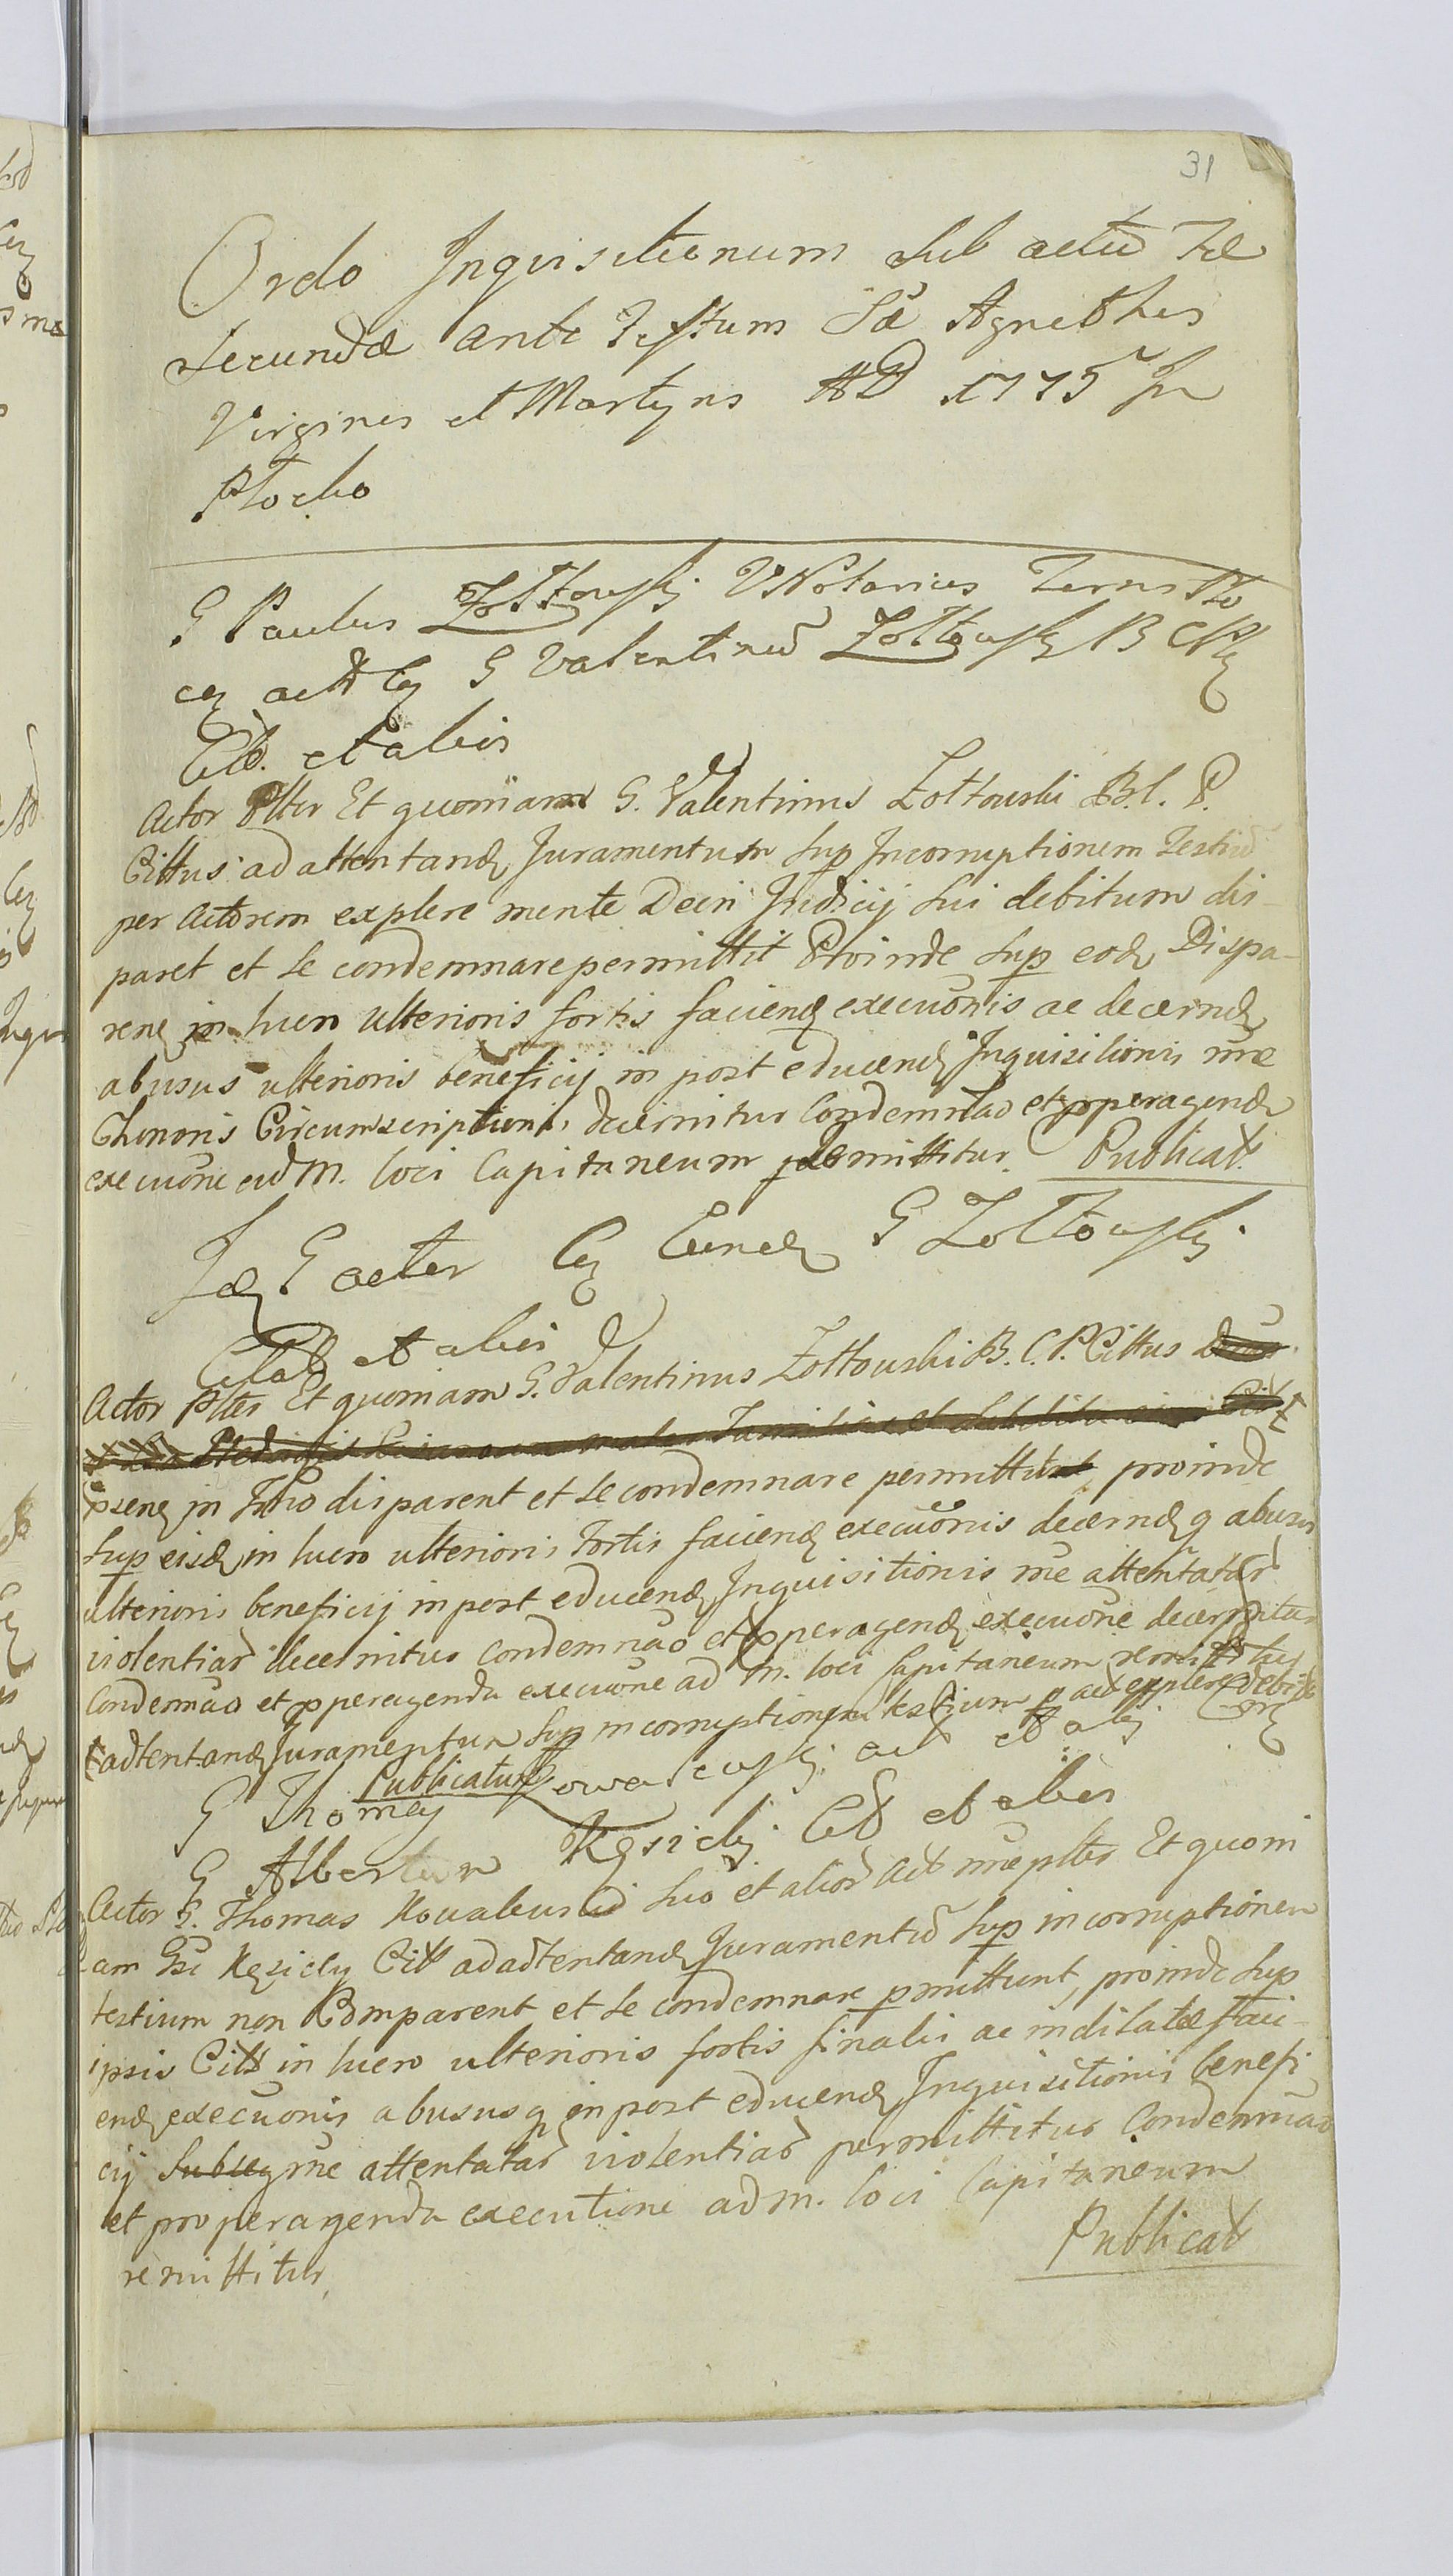 31
Ordo Inquisitionum sub actu Fe
Secunda ante Festum Sæ Agnethis
Virginis et Martyris AD 1775 In
Plocko
G Paulus Zołtowskj VNotarius Terrs Plo
cen actt Cn G Valentinu Zołtowskj B C P
Citt. et aliis
Actor Pltter Et quoniam G. Valentinus Zołtowski B. C. P.
Cittus ad attentand Juramentum sup Incorruptionem Testiu
per Actorem explere mente Decri Judicij sui debitum dis-
paret et se condemnare permittit Proinde sup eod Dispa-
ren in lucro ulterioris sortis faciend execuonis ac decernd
abusus ulterioris beneficij in post educend Inquisitionis me
Thenoris Circumscriptionis decernitur Condemnao et pperagenda
execuone ad M. loci Capitaneum remittitur. Publicatt
Id G actor Cn Eund G Zołtowskj
Citat et aliis
Actor Pltter Et quoniam G. Valentinus Zołtowski B. C. P. Cittus
in Trno disparent et se condemnare permittunt proinde
sup eisd in lucro ulterioris sortis faciend execuonis decernd q abusus
ulterioris beneficij in post educend Inquisitionis me attentatar
violentiar decernitur Condemnao et pperagend execuone decernitur
Condemnao et pperagenda execuone ad M. loci Capitaneum remittitur
adtentand Juramentum sup incorruptionem testium p act explere debit
Publicatum
G Thomas Kowalewskj act et alij
G Albertum Kęsickj Citt et alios
Actor G. Thomas Kowalewski suo et alior Act me pltter Et quoni
am Gsi Kęsicky Citt ad adtentand Juramentu sup incorruptionem
testium non Comparent et se condemnare pmittunt, proinde sup
ipsis Citt in lucro ulterioris sortis finalis ac indilatæ faci-
end execuonis abususq in post educend Inquisitionis benefi
cij me attentatar violentiar permittitur Condemnao
et pro peragenda executione ad M. loci Capitaneum
remittitur
Publicatt